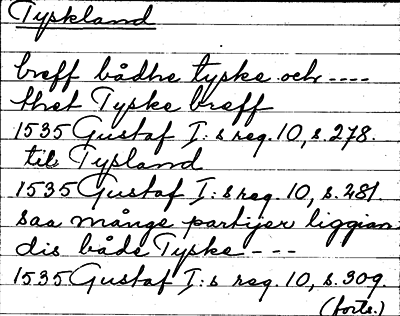 Tyskland
breff bådhe tyske och ----
thet Tyske breff
1535 Gustaf I:s reg. 10, s. 278.
till Tysland
1535 Gustaf I:s reg. 10, s. 281.
saa månge partijer liggian
dis både Tyske ---
1535 Gustaf I:s reg. 10, s. 309.
(forts.)